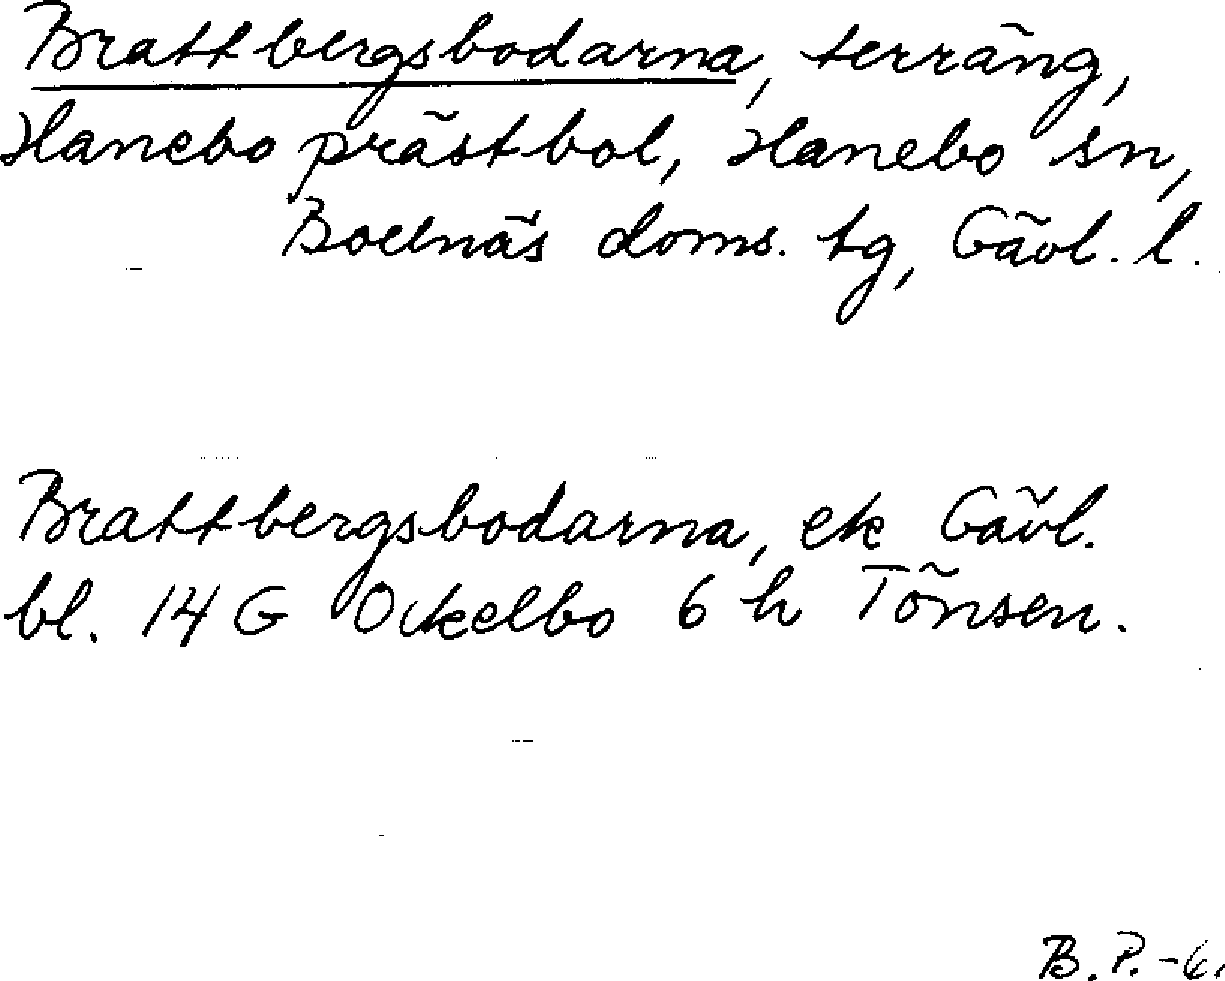 Brattbergsbodarna, terräng,
Hanebo prästbol, Hanebo sn,
Bollnäs doms. tg, Gävl. l.
Brattbergsbodarna, ek Gävl.
bl. 14 G Ockelbo 6 h Tönsen.
B. P. -6